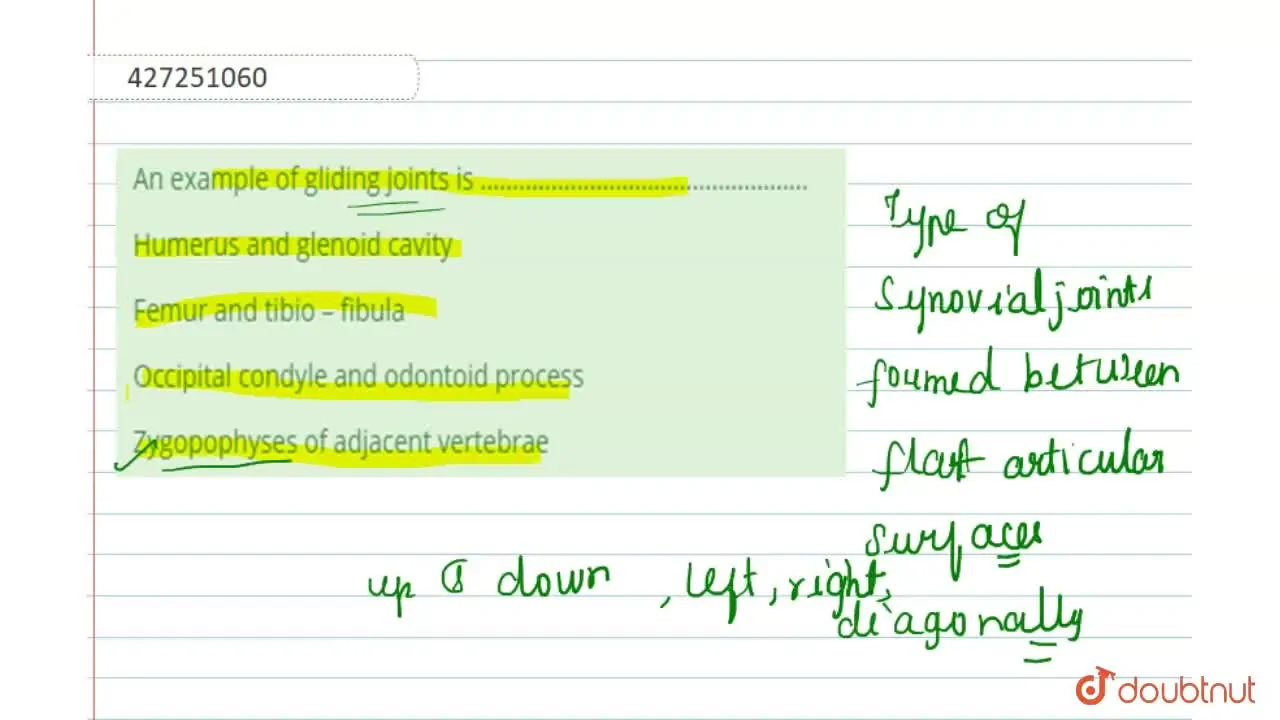 427251060
An example of gliding joints is ....................................................
Humerus and glenoid cavity
Femur and tibio – fibula
Occipital condyle and odontoid process
Zygopophyses of adjacent vertebrae
Type of
synovial joints
formed between
flat articular
surfaces
up & down , left, right,
diagonally
doubtnut